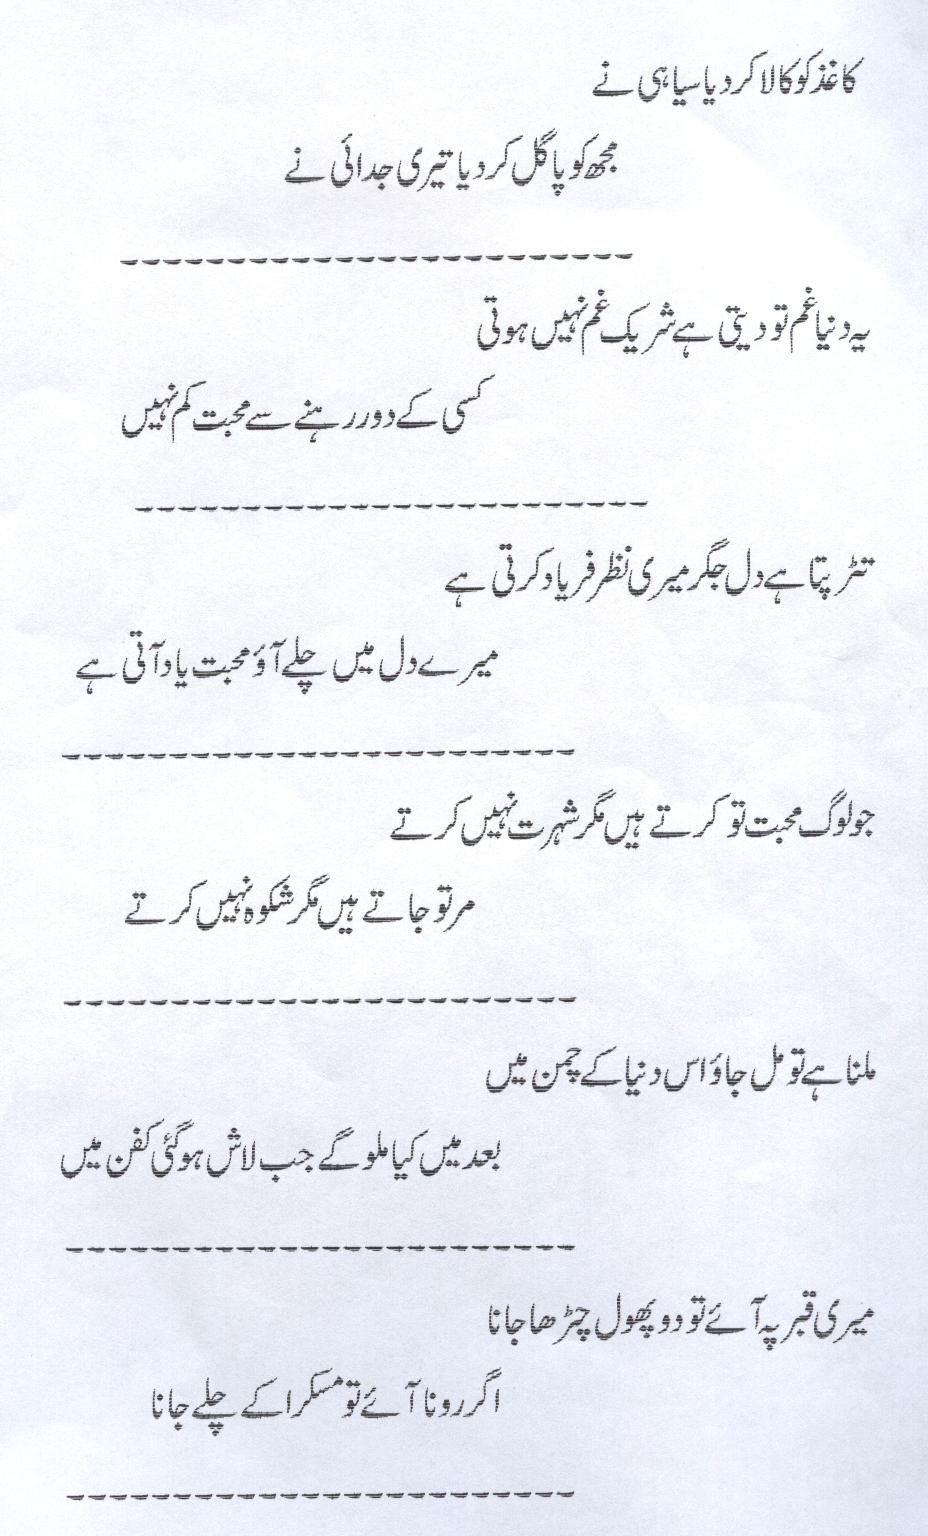 کاغذ کو کالا کر دیا سیاہی نے
مجھ کو پاگل کر دیا تیری جدائی نے
------------------------
یہ دنیا غم تو دیتی ہے شریک غم نہیں ہوتی
کسی کے دور رہنے سے محبت کم نہیں
------------------------
تڑپتا ہے دل جگر میری نظر فریاد کرتی ہے
میرے دل میں چلے آؤ محبت یاد آتی ہے
------------------------
جو لوگ محبت تو کرتے ہیں مگر شہرت نہیں کرتے
مر تو جاتے ہیں مگر شکوہ نہیں کرتے
------------------------
ملنا ہے تو مل جاؤ اس دنیا کے چمن میں
بعد میں کیا ملو گے جب لاش ہو گئی کفن میں
------------------------
میری قبر پہ آئے تو دو پھول چڑھا جانا
اگر رونا آئے تو مسکرا کے چلے جانا
------------------------